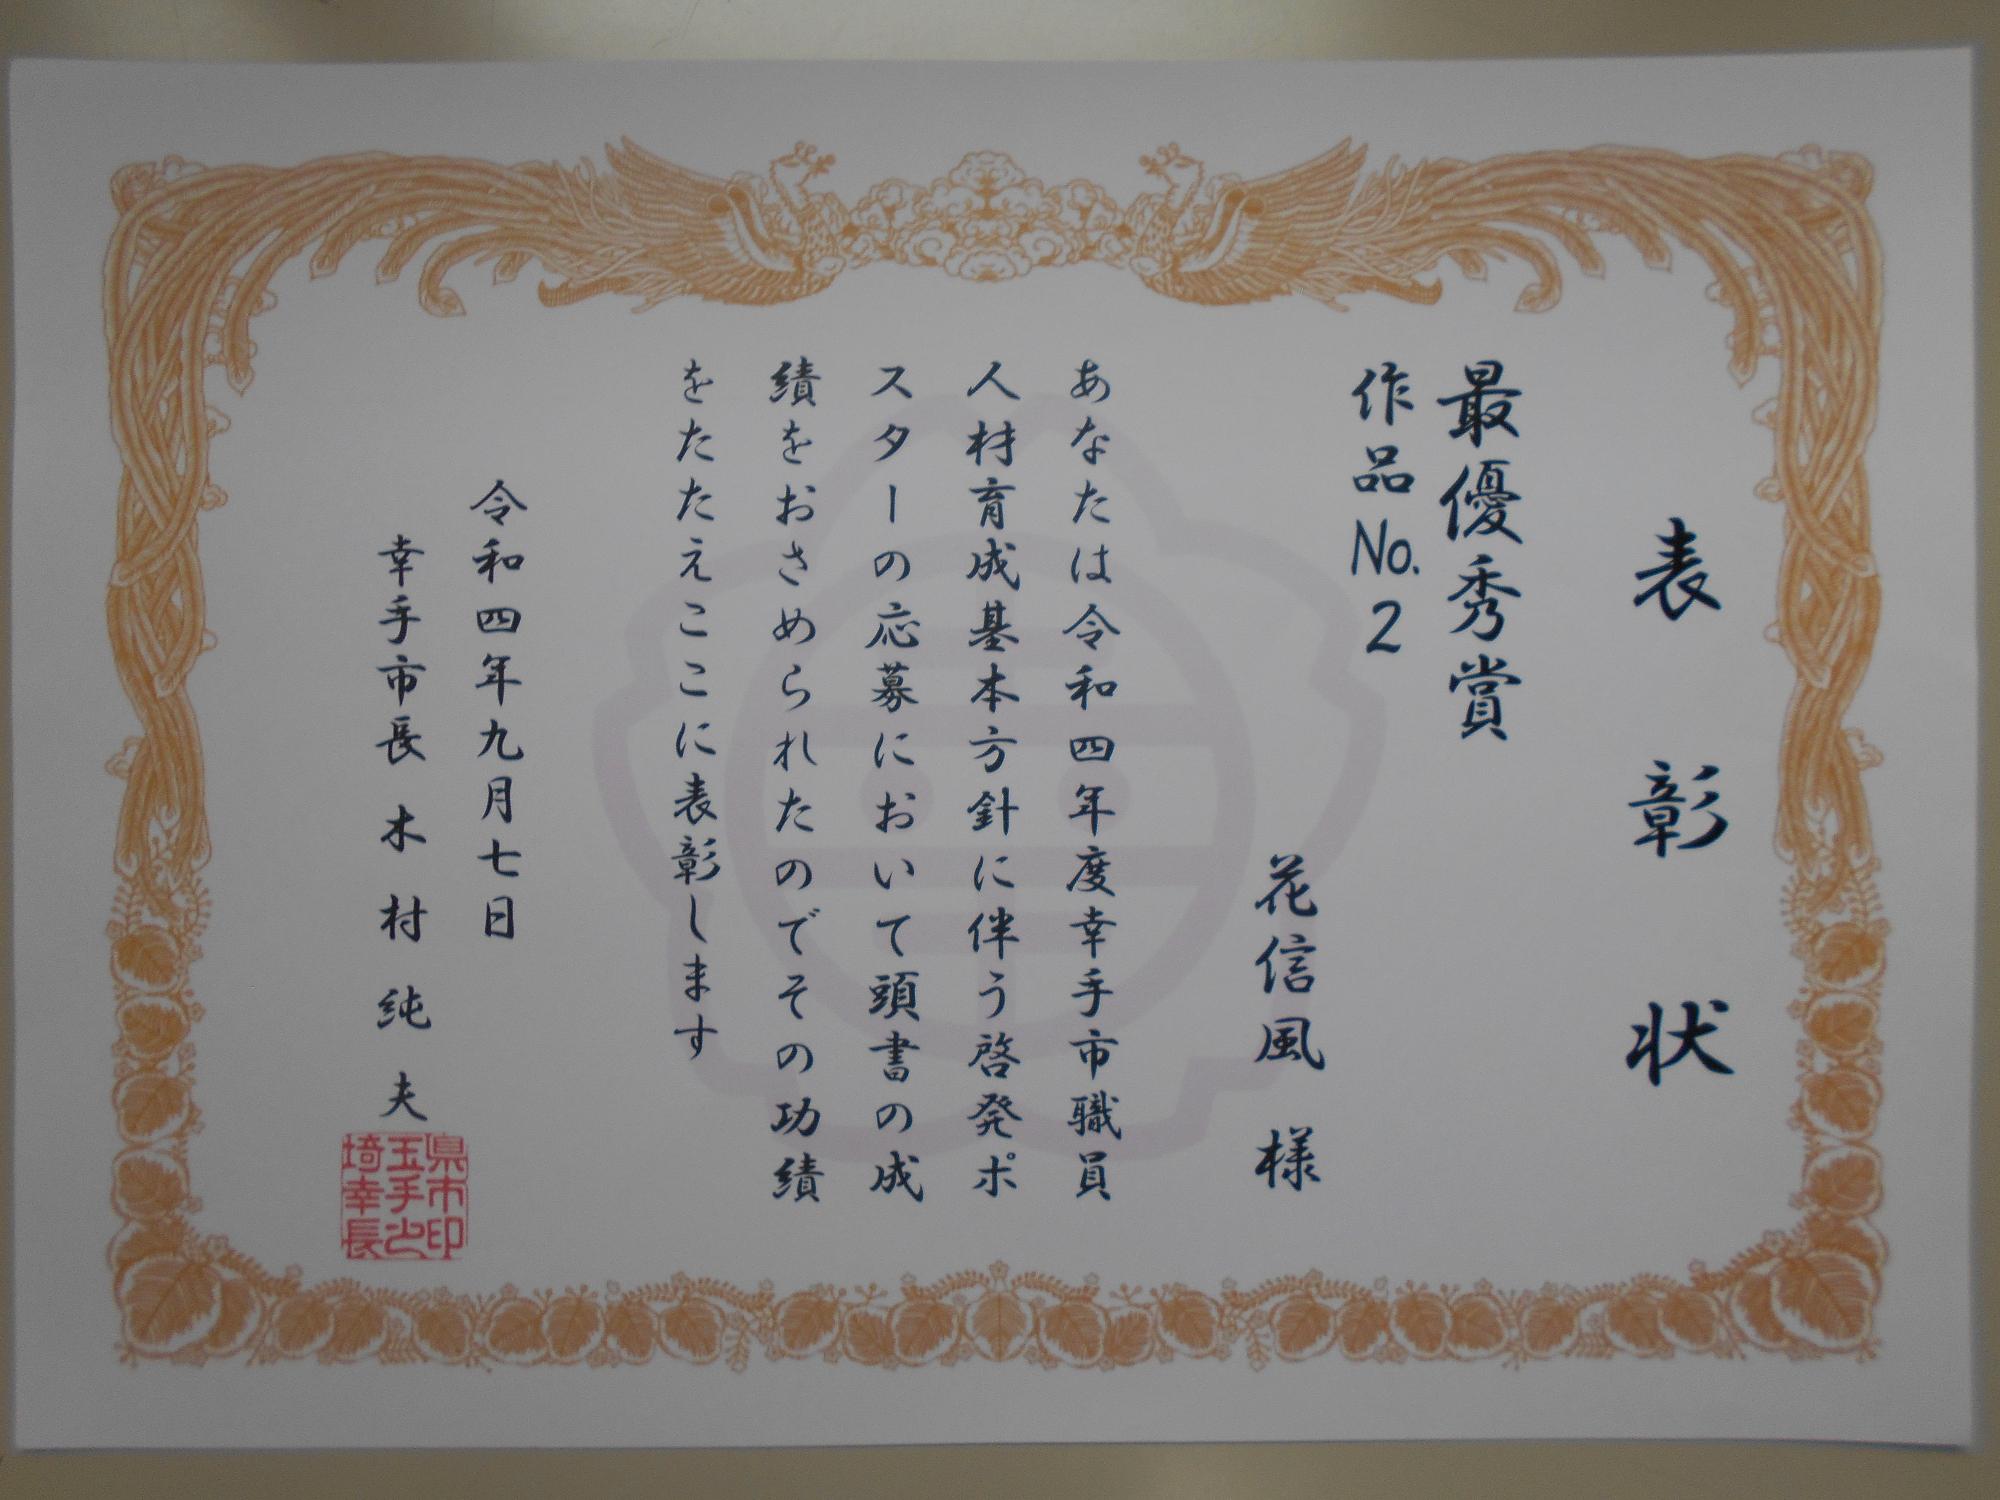 表彰状
最優秀賞
作品No.2
花信風 様
あなたは令和四年度幸手市職員
人材育成基本方針に伴う啓発ポ
スターの応募において頭書の成
績をおさめられたのでその功績
をたたえここに表彰します
令和四年九月七日
幸手市長 木村純夫
埼玉県
幸手市
長之印